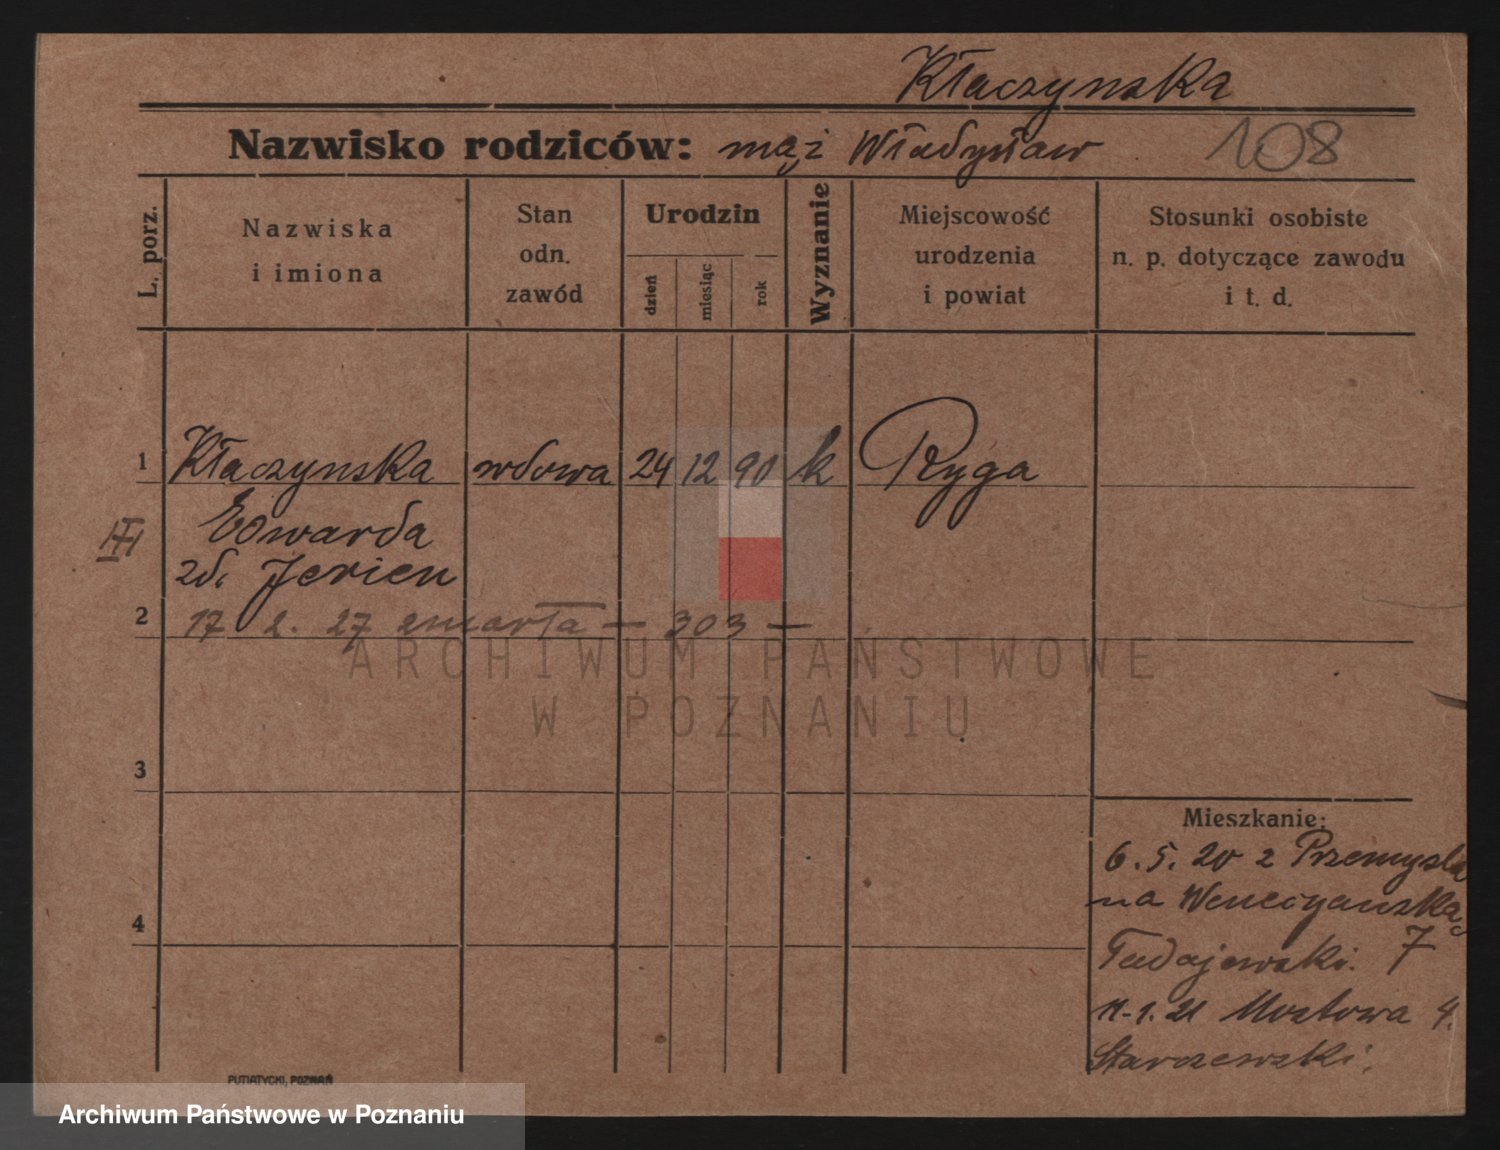 Kłaczynska
Nazwisko rodziców: mąż Władysław 108
L. porz.
Nazwiska
i imiona
Stan
odn.
zawód
Urodzin
dzień
miesiąc
rok
Wyznanie
Miejscowość
urodzenia
i powiat
Stosunki osobiste
n. p. dotyczące zawodu
i t. d.
1 Kłaczynska wdowa 24 12 90 k Ryga
Edwarda
zd. Jerien
2 17 2. 27 zmarła — 303 —
ARCHIWUM PAŃSTWOWE
W POZNANIU
3
4
Mieszkanie:
6. 5. 20 z Przemysla
na Wenecyanską
Tadajewski. 7
11-1. 21 Mostowa 4.
Starczewski.
PUTIATYCKI, POZNAŃ
Archiwum Państwowe w Poznaniu